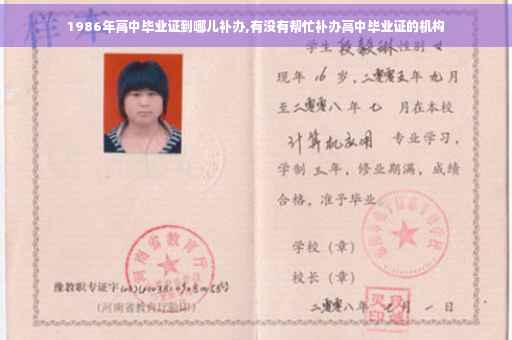 1986年高中毕业证到哪儿补办,有没有帮忙补办高中毕业证的机构
样本
学生 段毅琳 性别 女
现年 16 岁，二零零五年 九月
至二零零八年 七 月在本校
计算机应用 专业学习，
学制 三年，修业期满，成绩
合格，准予毕业
学校（章）
校长（章）
河南省教育厅
豫教职专证字
（河南省教育厅验印）
二零零八年 月 一 日